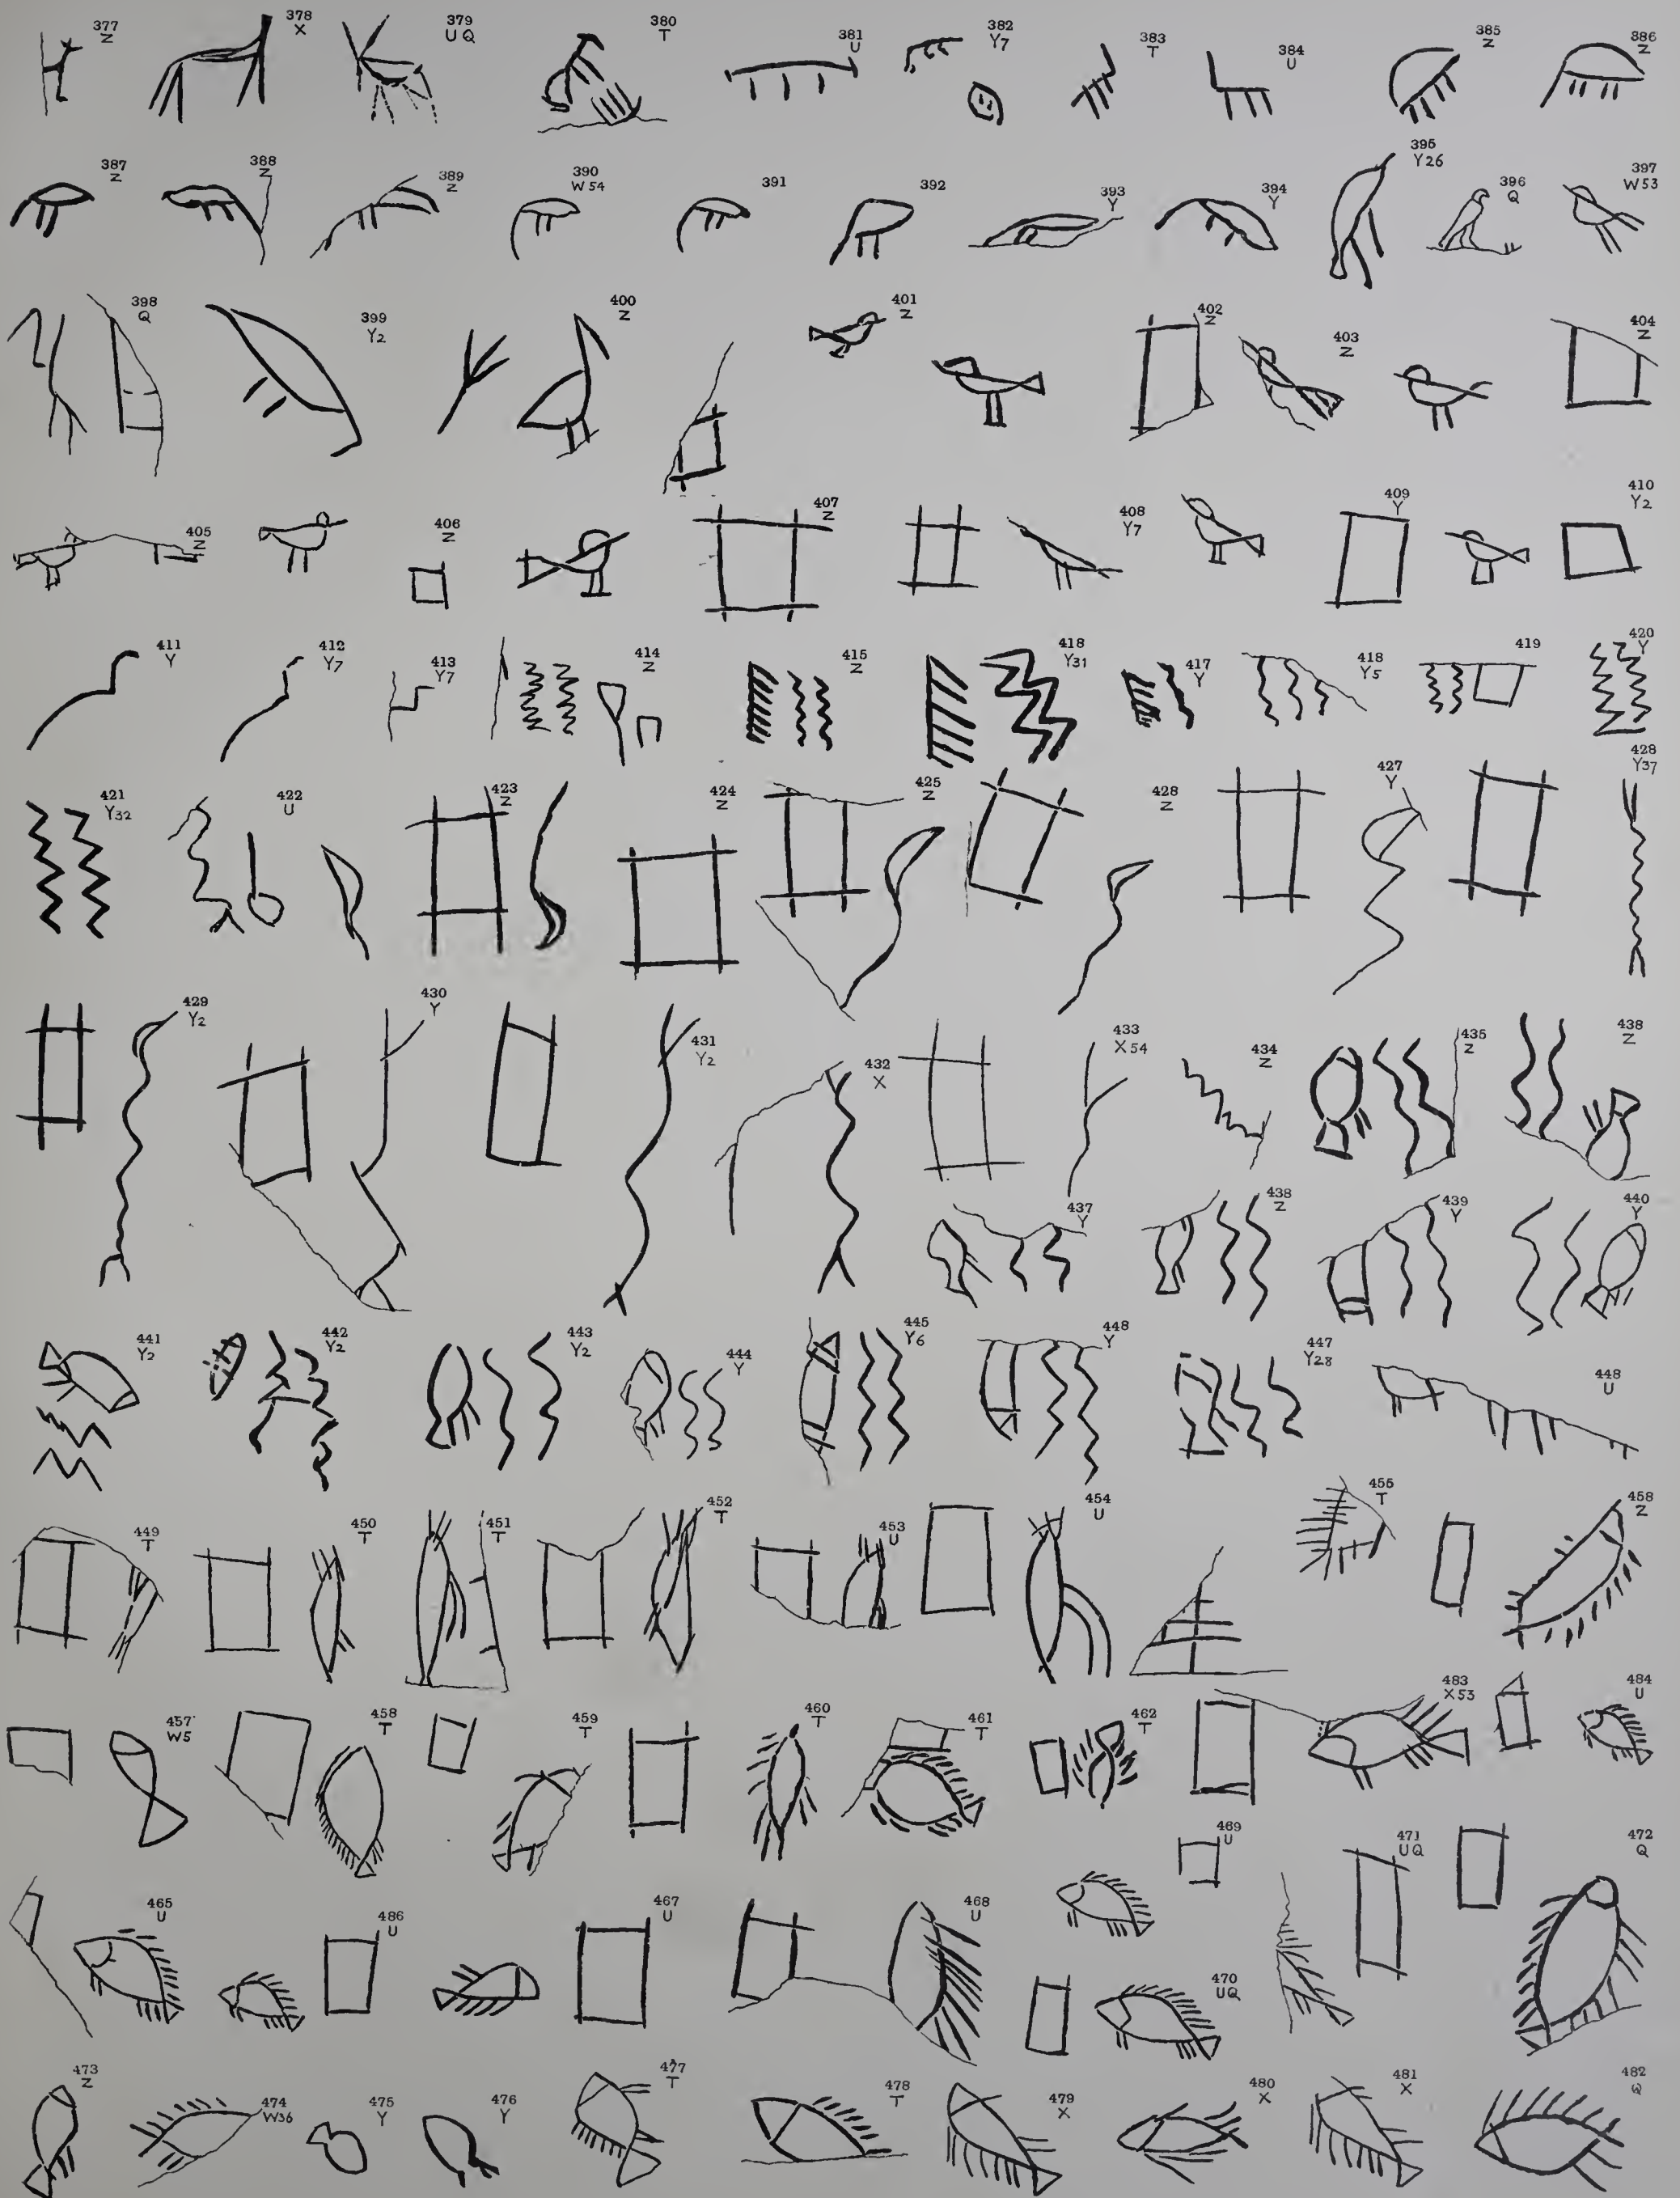 377 Z 378 X 379 U Q 380 T 381 U 382 Y7 383 T 384 U 385 Z 386 Z
387 Z 388 Z 389 Z 390 W54 391 392 393 Y 394 Y 395 Y26 396 Q 397 W53
398 Q 399 Y2 400 Z 401 Z 402 Z 403 Z 404 Z
405 Z 406 Z 407 Z 408 Y7 409 Y 410 Y2
411 Y 412 Y7 413 Y7 414 Z 415 Z 418 Y31 417 Y 418 Y5 419 420 Y
421 Y32 422 U 423 Z 424 Z 425 Z 428 Z 427 Y 428 Y37
429 Y2 430 Y 431 Y2 432 X 433 X54 434 Z 435 Z 438 Z
437 Y 438 Z 439 Y 440 Y
441 Y2 442 Y2 443 Y2 444 Y 445 Y6 448 Y 447 Y28 448 U
449 T 450 T 451 T 452 T 453 U 454 U 455 T 458 Z
457 W5 458 T 459 T 460 T 461 T 462 T 483 X53 484 U
465 U 486 U 467 U 468 U 469 U 470 UQ 471 UQ 472 Q
473 Z 474 W36 475 Y 476 Y 477 T 478 T 479 X 480 X 481 X 482 Q